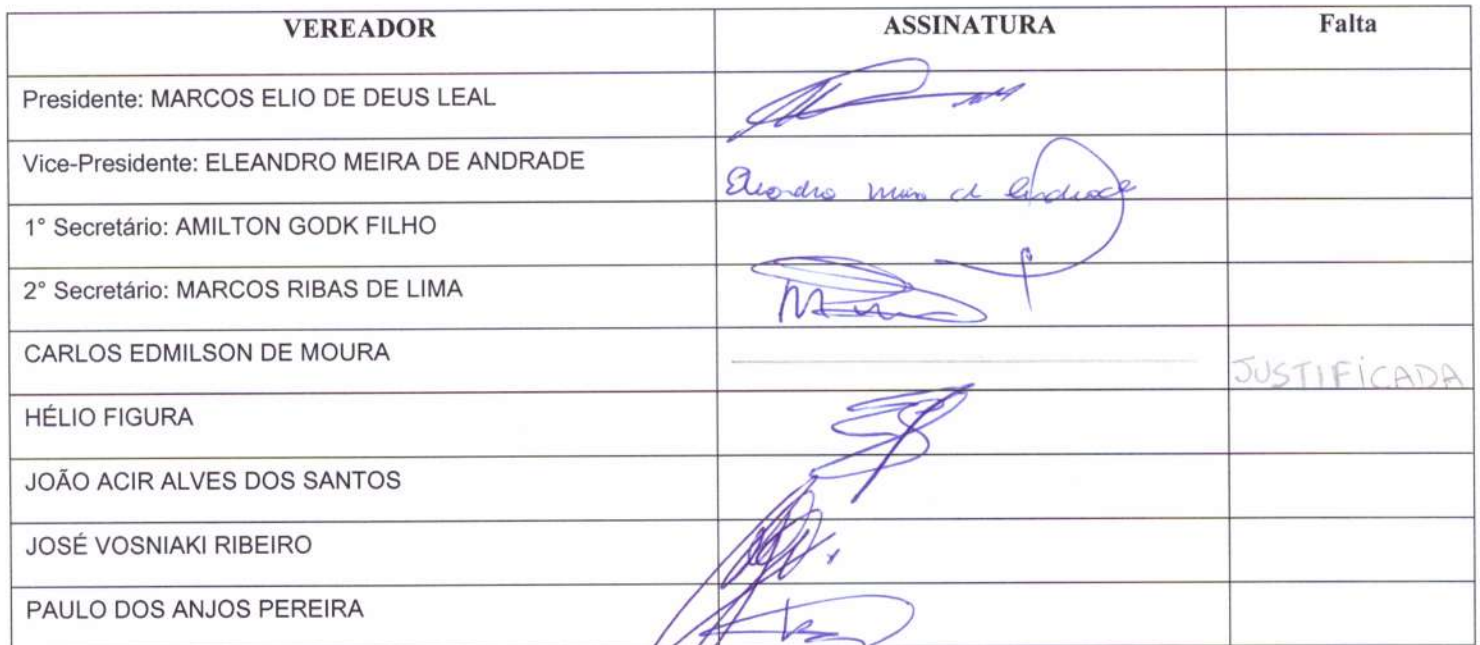 VEREADOR ASSINATURA Falta
Presidente: MARCOS ELIO DE DEUS LEAL
Vice-Presidente: ELEANDRO MEIRA DE ANDRADE
1° Secretário: AMILTON GODK FILHO
2° Secretário: MARCOS RIBAS DE LIMA
CARLOS EDMILSON DE MOURA JUSTIFICADA
HÉLIO FIGURA
JOÃO ACIR ALVES DOS SANTOS
JOSÉ VOSNIAKI RIBEIRO
PAULO DOS ANJOS PEREIRA